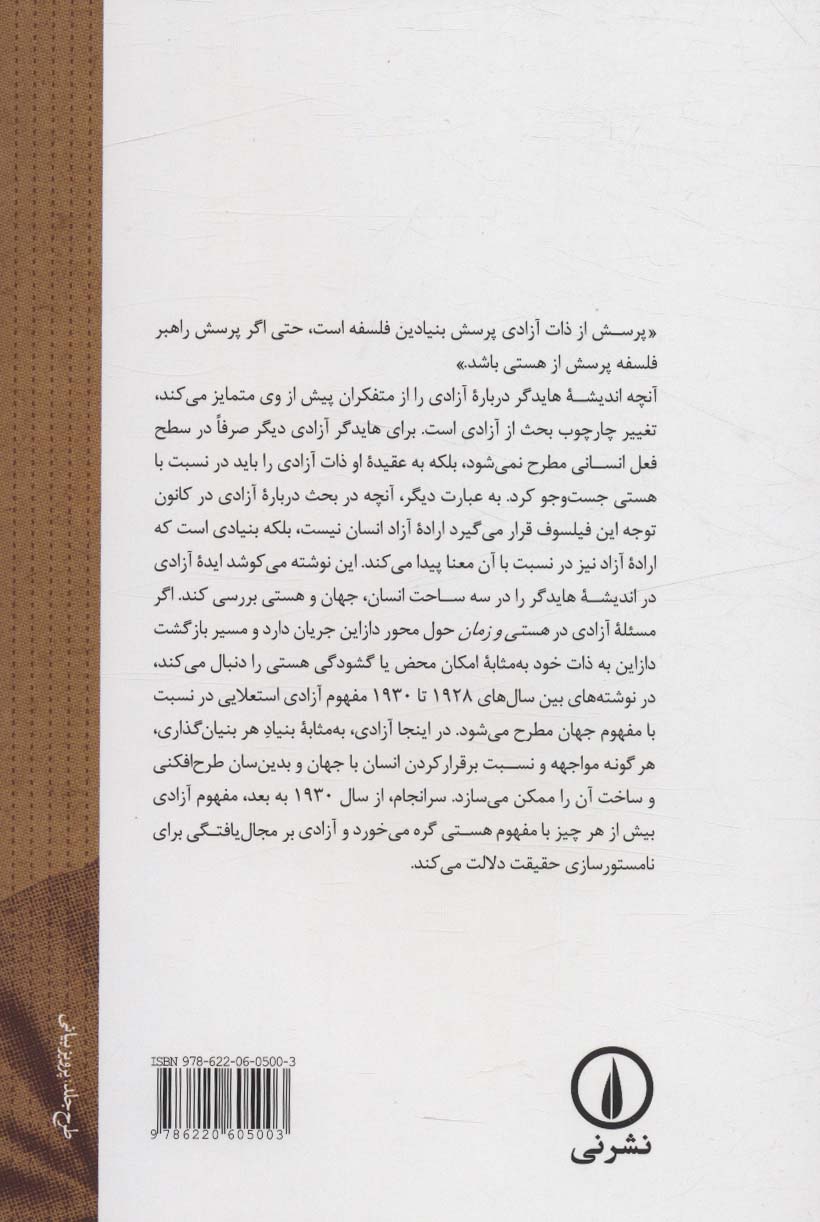 «پرسش از ذات آزادی پرسش بنیادین فلسفه است، حتی اگر پرسش راهبر
فلسفه پرسش از هستی باشد.»
آنچه اندیشۀ هایدگر دربارۀ آزادی را از متفکران پیش از وی متمایز می‌کند،
تغییر چارچوب بحث از آزادی است. برای هایدگر آزادی دیگر صرفاً در سطح
فعل انسانی مطرح نمی‌شود، بلکه به عقیدۀ او ذات آزادی را باید در نسبت با
هستی جست‌وجو کرد. به عبارت دیگر، آنچه در بحث دربارۀ آزادی در کانون
توجه این فیلسوف قرار می‌گیرد ارادۀ آزاد انسان نیست، بلکه بنیادی است که
ارادۀ آزاد نیز در نسبت با آن معنا پیدا می‌کند. این نوشته می‌کوشد ایدۀ آزادی
در اندیشۀ هایدگر را در سه ساحت انسان، جهان و هستی بررسی کند. اگر
مسئلۀ آزادی در هستی و زمان حول محور دازاین جریان دارد و مسیر بازگشت
دازاین به ذات خود به‌مثابۀ امکان محض یا گشودگی هستی را دنبال می‌کند،
در نوشته‌های بین سال‌های ۱۹۲۸ تا ۱۹۳۰ مفهوم آزادی استعلایی در نسبت
با مفهوم جهان مطرح می‌شود. در اینجا آزادی، به‌مثابۀ بنیادِ هر بنیان‌گذاری،
هر گونه مواجهه و نسبت برقرارکردن انسان با جهان و بدین‌سان طرح‌افکنی
و ساخت آن را ممکن می‌سازد. سرانجام، از سال ۱۹۳۰ به بعد، مفهوم آزادی
بیش از هر چیز با مفهوم هستی گره می‌خورد و آزادی بر مجال‌یافتگی برای
نامستورسازی حقیقت دلالت می‌کند.
طرح جلد: پرویز بیانی
ISBN 978-622-06-0500-3
9 786220 605003
نشرنی